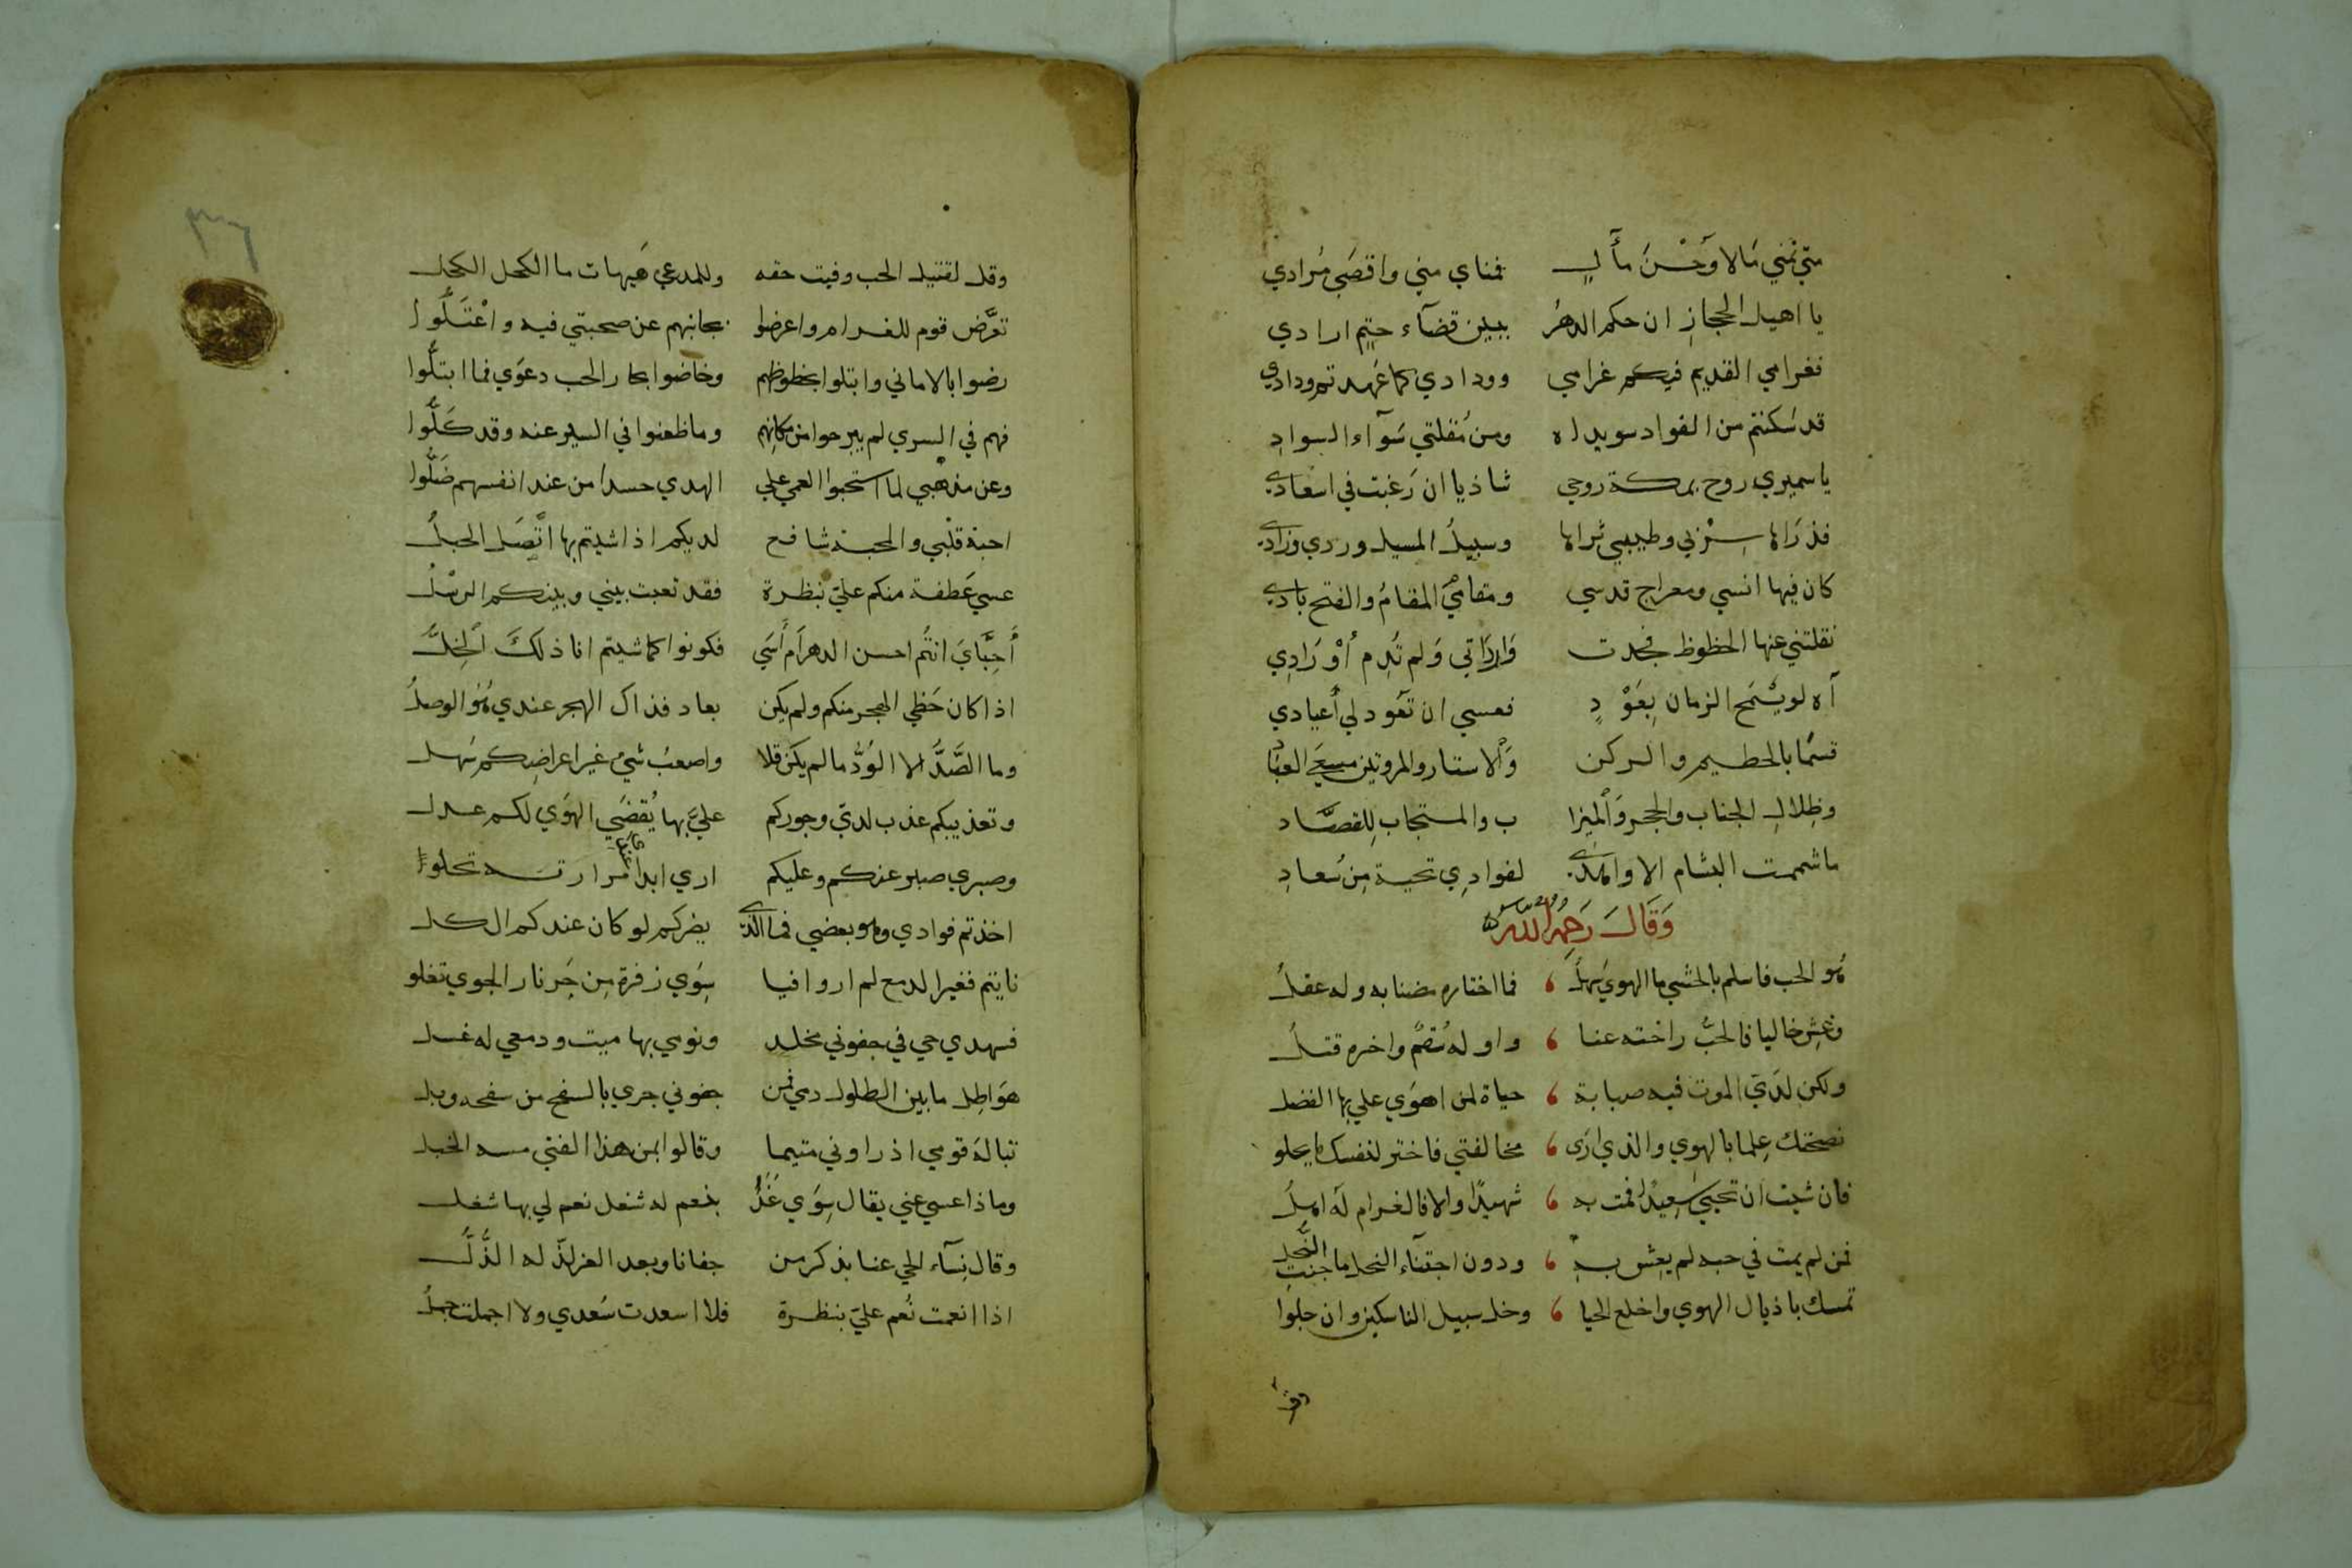 متي تمني مالا وحسن مأل فمناي مني واقصي مرادي
يا اهيل الحجاز ان حكم الدهر ببين قضآء حتم ارادي
فغرامي القديم فيكم غرامي وودادي كما عهدتم ودادي
قد سكنتم من الفواد سويداه ومن مقلتي سوآء السواد
ياسميري روح بمكة روحي شاذيا ان رغبت في اسعادي
فذراها سربي وطيبي ثراها وسبيل المسيل وردي وزادي
كان فيها انسي ومعراج قدسي ومقامي المقام والفتح بادي
نقلتني عنها الحظوظ فجدت وارداتي ولم تدم أورادي
آه لو يسمح الزمان بعود فعسي ان تعود لي أعيادي
قسما بالحطيم والركن والاستار والمروتين مسعي العباد
وظلال الجناب والحجر والميزا ب والمستجاب للقصاد
ما شممت البشام الا واهدي لفوادي تحية من سعاد
وقال رحمه الله
هو الحب فاسلم بالحشي ما الهوي سهل فما اختاره مضنا به وله عقل
وعش خاليا فالحب راحته عنا واوله سقم واخره قتل
ولكن لدي الموت فيه صبابة حياة لمن اهوي علي بها الفضل
نصحتك علما بالهوي والذي ارى مخالفتي فاختر لنفسك ما يحلو
فان شيت ان تحيي سعيدا فمت به شهيدا والا فالغرام له اهل
فمن لم يمت في حبه لم يعش به ودون اجتنآء النحل ما جنت النحل
تمسك باذيال الهوي واخلع الحيا وخل سبيل الناسكين وان جلوا
وقل
٣٦
وقل لقتيل الحب وفيت حقه وللمدعي هيهات ما الكحل الكحل
تعرض قوم للغرام واعرضوا بجانبهم عن صحبتي فيه واعتلوا
رضوا بالاماني وابتلوا بحظوظهم وخاضوا بحار الحب دعوي فما ابتلوا
فهم في السري لم يبرحوا من مكانهم وما ظعنوا في السير عنه وقد كلوا
وعن مذهبي لما استحبوا العمي علي الهدي حسدا من عند انفسهم ضلوا
احبة قلبي والمحبة شافع لديكم اذا شيتم بها اتصل الحبل
عسي عطفة منكم علي بنظرة فقد تعبت بيني وبينكم الرسل
أحباي انتم احسن الدهر أم أسي فكونوا كما شيتم انا ذلك الخل
اذا كان حظي الهجر منكم ولم يكن بعاد فذاك الهجر عندي هو الوصل
وما الصد الا الود ما لم يكن قلا واصعب شي غير اعراضكم سهل
وتعذيبكم عذب لدي وجوركم علي بها يقضي الهوي لكم عدل
وصبري صبر عنكم وعليكم اري ابدا عندي مرارته تحلوا
اخذتم فوادي وهو بعضي فما الذي يضركم لو كان عندكم الكل
نايتم فغير الدمع لم ار وافيا سوي زفرة من حر نار الجوي تغلو
فسهدي حي في جفوني مخلد ونومي بها ميت ودمعي له غسل
هوا طل ما بين الطلول دمي فمن جفوني جري بالسفح من سفحه وبل
تباله قومي اذ راوني متيما وقالوا بمن هذا الفتي مسه الخبل
وماذا عسي عني يقال سوي غدا بنعم له شغل نعم لي بها شغل
وقال نسآء الحي عنا بذكر من جفانا وبعد العز لذ له الذل
اذا انعمت نعم علي بنظرة فلا اسعدت سعدي ولا اجملت جمل